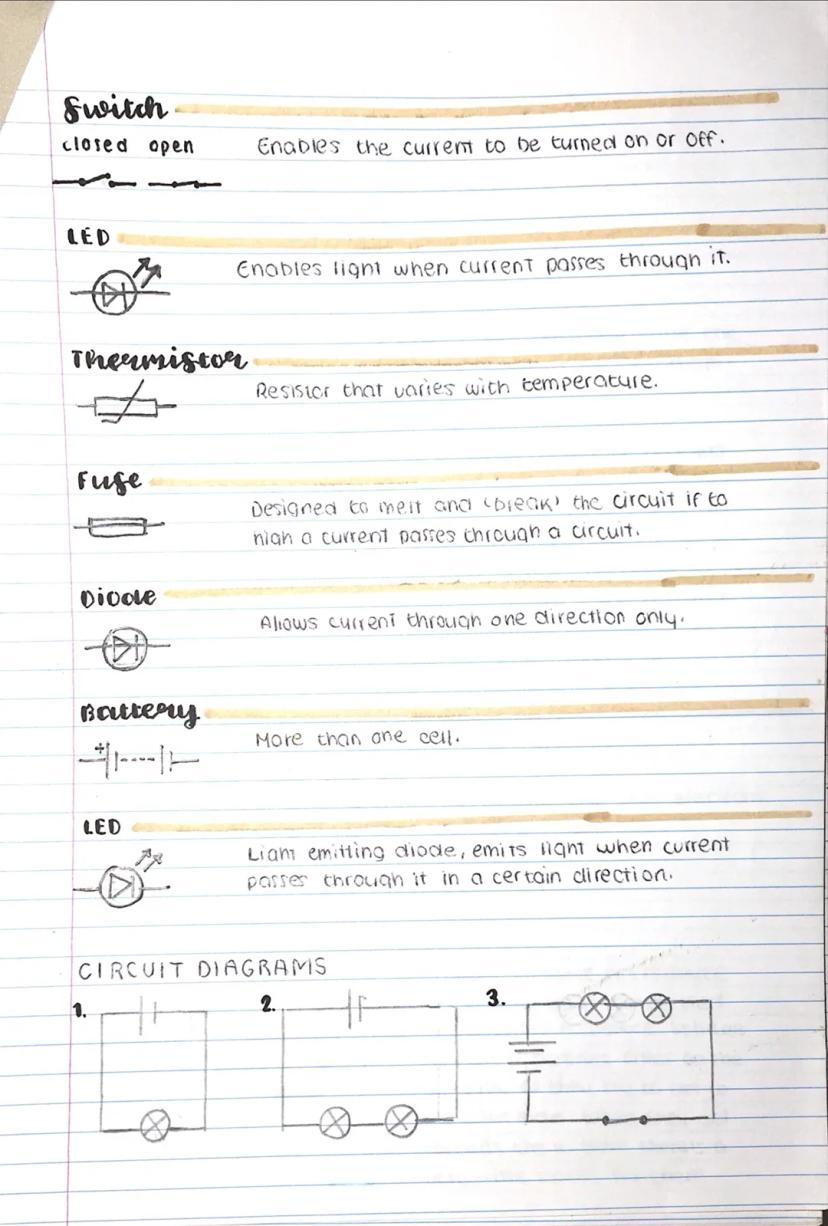 Switch
closed open Enables the current to be turned on or off.
LED
Enables light when current passes through it.
Thermistor
Resistor that varies with temperature.
Fuse
Designed to melt and 'break' the circuit if to
high a current passes through a circuit.
Diode
Allows current through one direction only.
Battery
More than one cell.
+
LED
Light emitting diode, emits light when current
passes through it in a certain direction.
CIRCUIT DIAGRAMS
1. 2. 3.